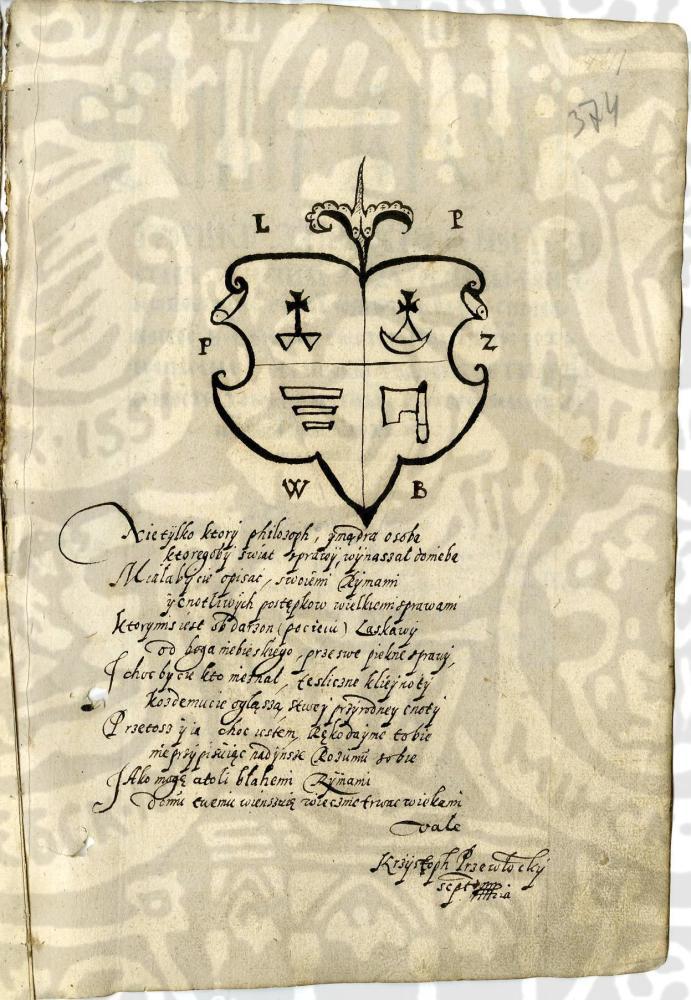 374
L P
P Z
W B
Nie tylko ktory philosoph, y mądra osoba
ktoregoby swiat sprawy, wynaszał do nieba
Miałaby cie opisać, swoiemi Rymami
y cnotliwych postępkow wielkiemi sprawami
Ktorymis iest obdarzon (pociecu) Laskawy
od boga niebieskiego, przeswe piekne sprawy,
I choc by cie kto nieznał, te sliczne kliejnoty
kozdemu cie ogłaszą, stwej przyrodney cnoty
Przetosz y ia choc iestem, Rękodayne tobie
nie przypisuiąc nadynsze Rozumu sobie
Jako mogę atoli błahemi Rymami
Domu twemu wienszuię wiecznie trwac wiekami
Vale
Krzysztoph Przewłocky